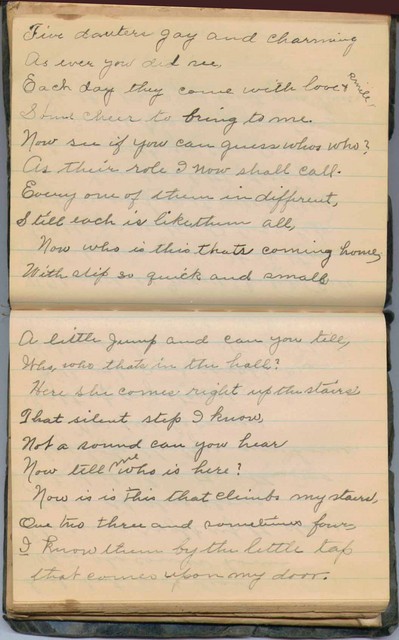 Five dauters gay and charming
As ever you did see,
Each day they come with love & smile
And cheer to bring to me.
Now see if you can guess whos who?
As their role I now shall call.
Every one of them in different,
Still each is like them all,
Now who is this thats coming home,
With step so quick and small
A little jump and can you tell,
Who, who thats in the hall?
Here she comes right up the stairs
That silent step I know,
Not a sound can you hear
Now tell me who is here?
Now is is this that climbs my stairs,
One two three and sometimes four,
I know them by the little tap
that comes upon my door.